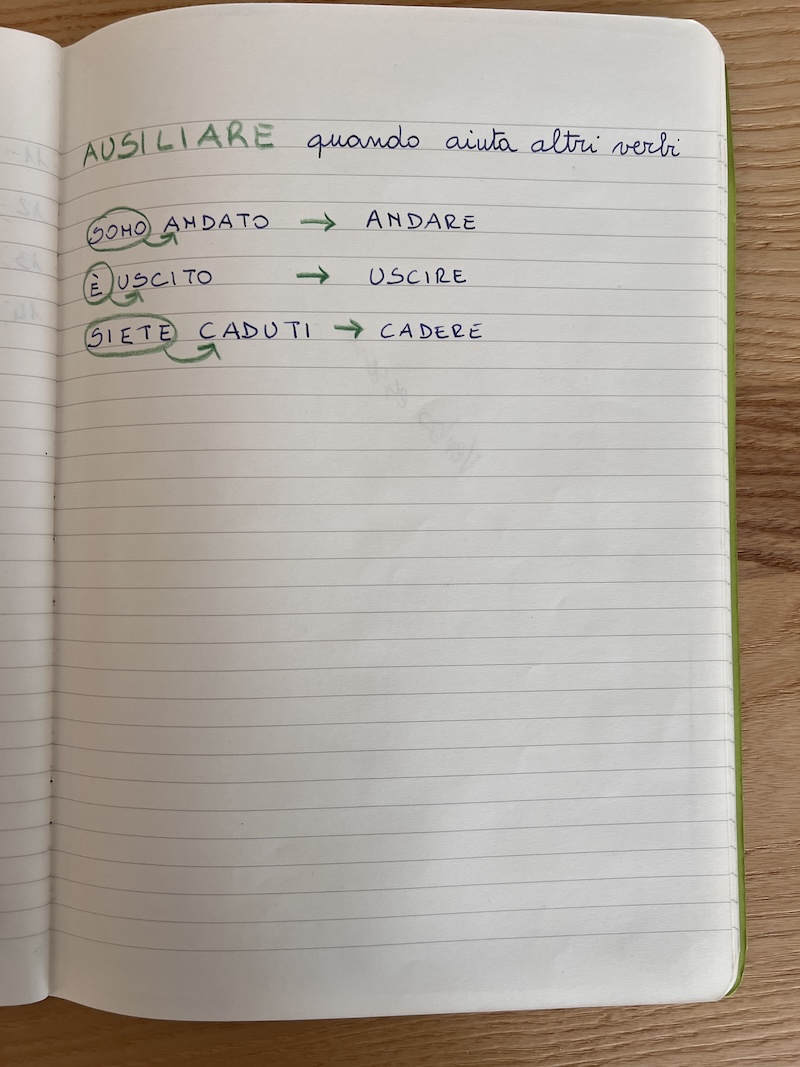 AUSILIARE quando aiuta altri verbi
SONO ANDATO → ANDARE
È USCITO → USCIRE
SIETE CADUTI → CADERE